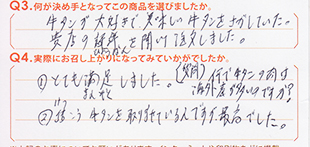 Q3.何が決め手となってこの商品を選びましたか。
牛タンが大好きで美味い牛タンをさがしていた。
貴店の評判を聞いて注文しました。
ひょうばん
Q4.実際にお召し上がりになってみていかがでしたか。
①とても満足しました。(質問)何で牛タンの肉は
まんぞく
海外産が多いのですか?
②けっこう牛タンを取りよせているんですが最高でした。